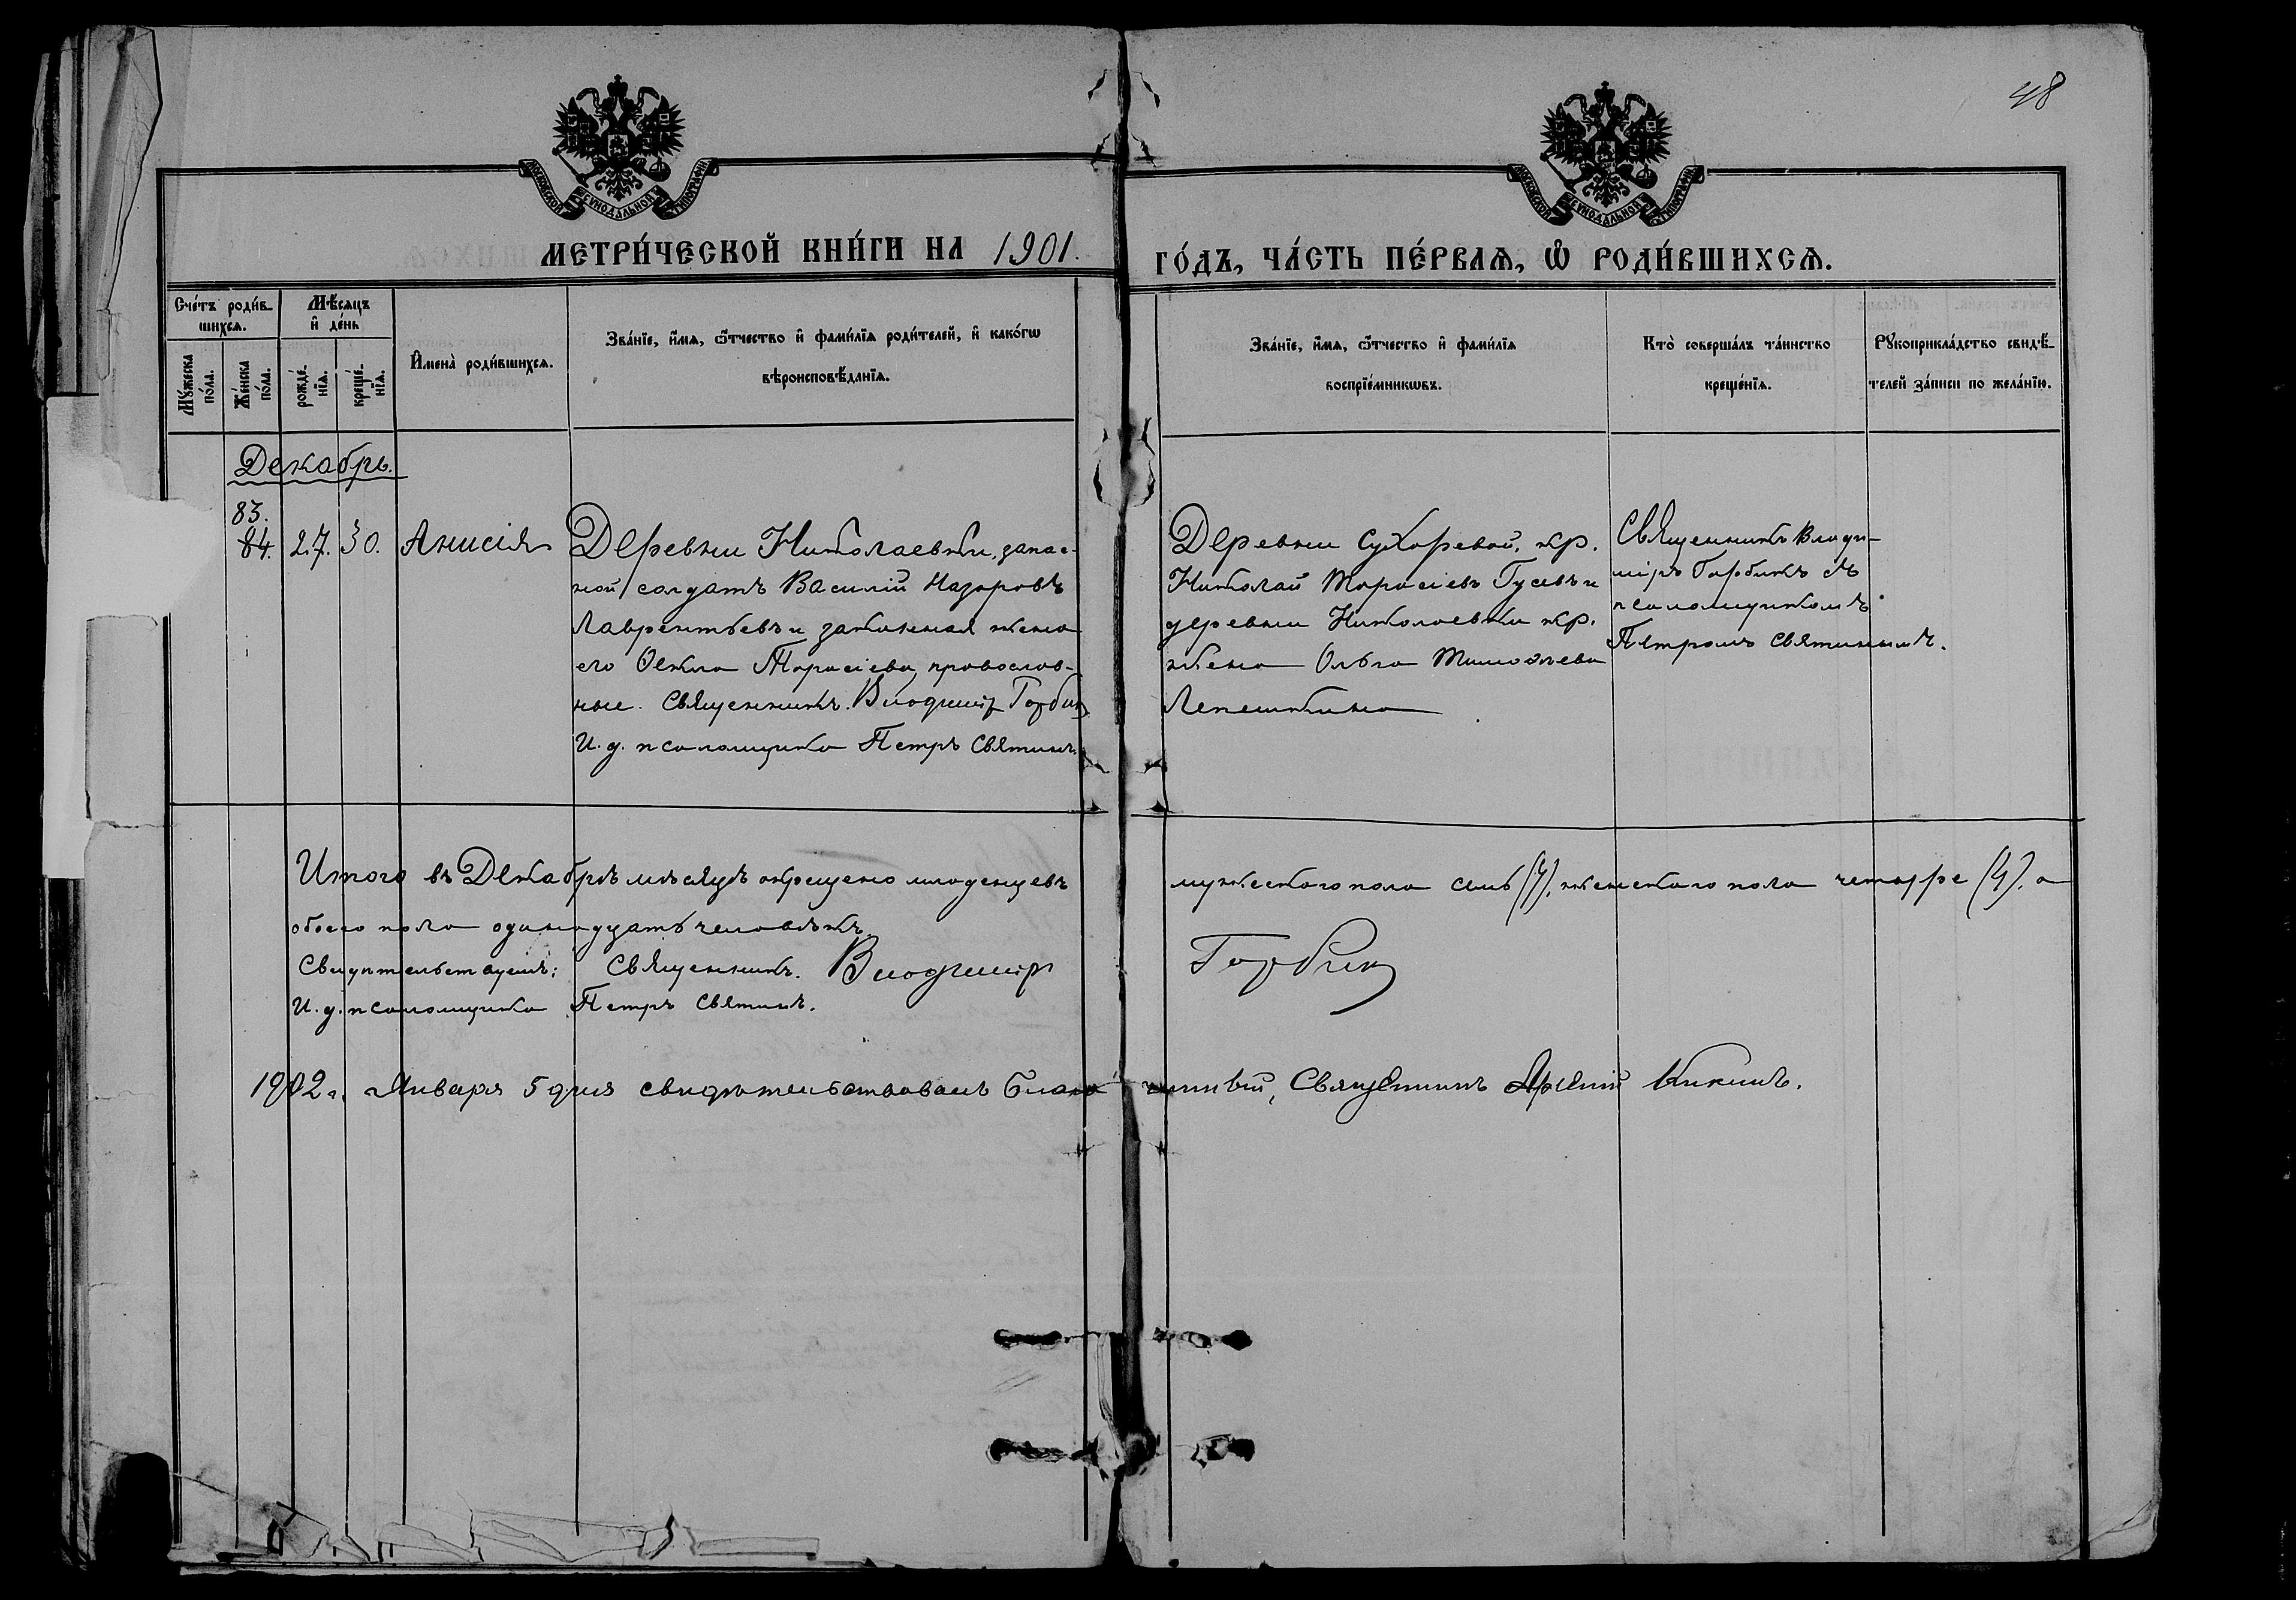 48
МОСКОВСКОЙ СѴНОДАЛЬНОЙ ТИПОГРАФІИ
МОСКОВСКОЙ СѴНОДАЛЬНОЙ ТИПОГРАФІИ
МЕТРИ́ЧЕСКОЙ КНИ́ГИ НА 1901.
ГО́ДЪ, ЧА́СТЬ ПЕ́РВАѦ, Ѽ РОДИ́ВШИХСѦ.
Сче́тъ роди́в-
шихсѧ.
Мѣ́сѧцъ
и҆ де́нь
Мꙋ́жеска
по́ла.
Же́нска
по́ла.
рожде́-
нїѧ.
креще́-
нїѧ.
И҆мена̀ роди́вшихсѧ.
Зва́нїе, и҆́мѧ, ѻ҆́тчество и҆ фами́лїѧ роди́телей, и҆ како́гѡ
вѣроисповѣ́данїѧ.
Зва́нїе, и҆́мѧ, ѻ҆́тчество и҆ фами́лїѧ
воспрїе́мникѡвъ.
Кто̀ соверша́лъ та́инство
креще́нїѧ.
Рꙋкоприкла́дство свидѣ́-
телей за́писи по жела́нїю.
Декабрь.
83.
84. 27. 30. Анисія
Деревни Николаевки, запас-
ной солдатъ Василій Назаровъ
Лаврентьевъ и законная жена
его Ѳекла Тарасіева, православ-
ные. Священникъ. Владиміръ Горбин
И. д. псаломщика Петръ Святинъ.
Деревни Сухоревой, кр.
Николай Тарасіевъ Гусевъ и
деревни Николаевки кр.
жена Ольга Тимоѳеева
Лепешкина
Священникъ Влади-
міръ Горбинъ съ
псаломщикомъ
Петромъ Святинымъ.
Итого въ Декабрѣ мѣсяцѣ окрещено младенцевъ
мужескаго пола семь (7), женскаго пола четыре (4), а
обоего пола одинадцать человѣкъ.
Свидѣтельствуемъ: Священникъ. Владиміръ
Горбин
И. д. псаломщика Петръ Святинъ.
1902 г. Января 5 дня свидѣтельствовалъ Благо
чинный, Священникъ Кикинъ.